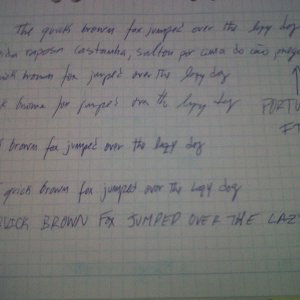 The quick brown fox jumped over the lazy dog
raposa castanha, saltou por cima do cão
brown fox jumped over the lazy dog
brown fox jumped over the lazy dog
PORTU
brown fox jumped over the lazy dog
quick brown fox jumped over the lazy dog
QUICK BROWN FOX JUMPED OVER THE LAZ